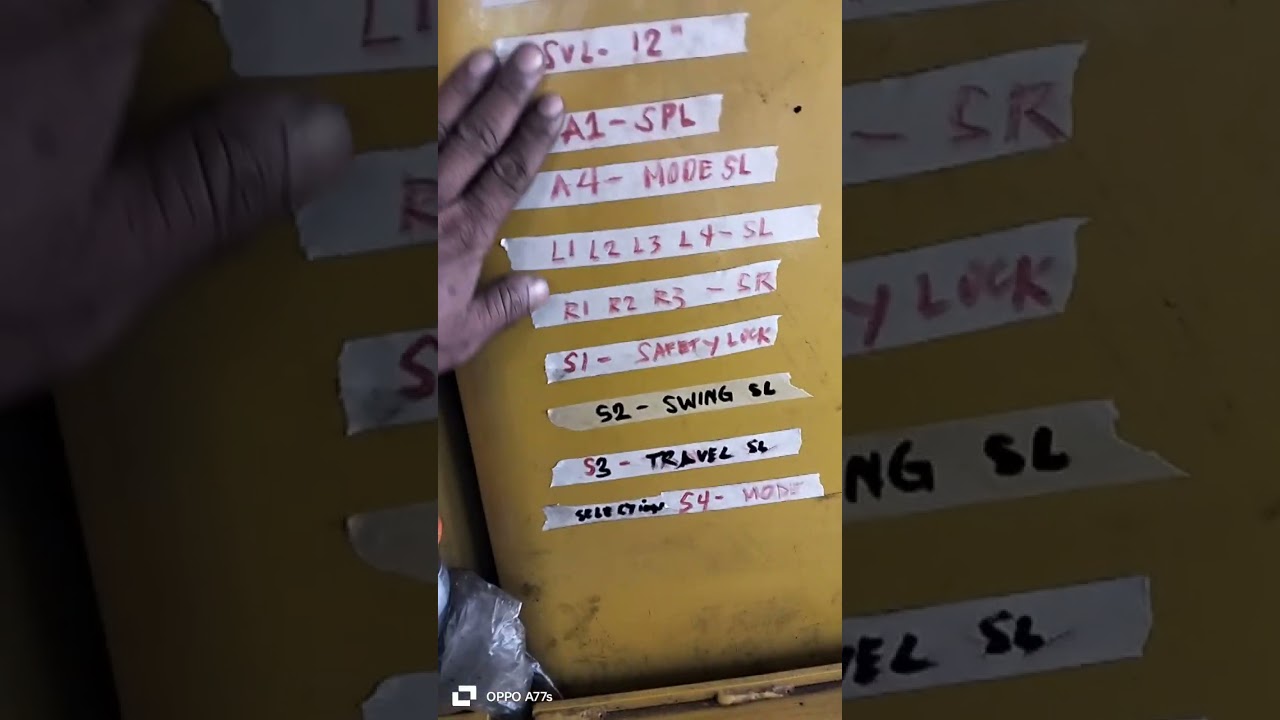 SVL- 12"
A1 - SPL
A4 - MODE SL
L1 L2 L3 L4 - SL
R1 R2 R3 - SR
S1 - SAFETY LOCK
S2 - SWING SL
S3 - TRAVEL SL
SELECTION S4 - MODE
OPPO A77s